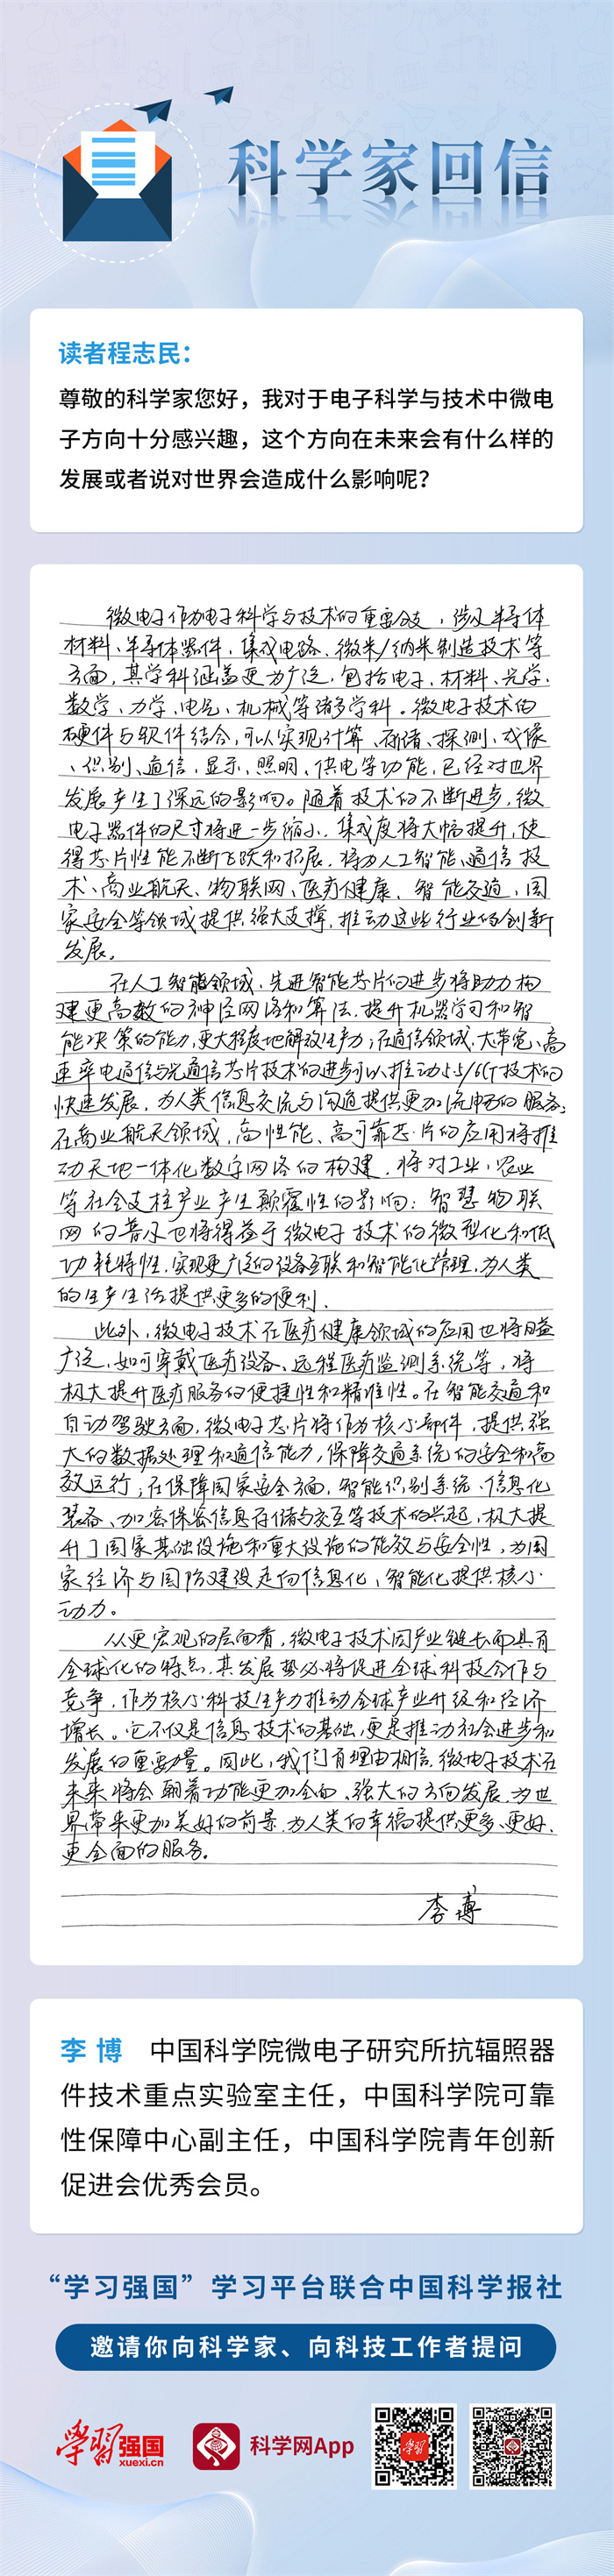 科学家回信
读者程志民：
尊敬的科学家您好，我对于电子科学与技术中微电
子方向十分感兴趣，这个方向在未来会有什么样的
发展或者说对世界会造成什么影响呢？
微电子作为电子科学与技术的重要分支，涉及半导体
材料、半导体器件、集成电路、微米/纳米制造技术等
方面，其学科涵盖更为广泛，包括电子、材料、光学、
数学、力学、电气、机械等诸多学科。微电子技术的
硬件与软件结合，可以实现计算、存储、探测、成像
、识别、通信、显示、照明、供电等功能，已经对世界
发展产生了深远的影响。随着技术的不断进步，微
电子器件的尺寸将进一步缩小，集成度将大幅提升，使
得芯片性能不断飞跃和拓展，将为人工智能、通信技
术、商业航天、物联网、医疗健康、智能交通、国
家安全等领域提供强大支撑，推动这些行业的创新
发展。
在人工智能领域，先进智能芯片的进步将助力构
建更高效的神经网络和算法，提升机器学习和智
能决策的能力，更大程度地解放生产力；在通信领域，大带宽、高
速率电通信与光通信芯片技术的进步可以推动5.5/6G技术的
快速发展，为人类信息交流与沟通提供更加流畅的服务；
在商业航天领域，高性能、高可靠芯片的应用将推
动天地一体化数字网络的构建，将对工业、农业
等社会支柱产业产生颠覆性的影响；智慧物联
网的普及也将得益于微电子技术的微型化和低
功耗特性，实现更广泛的设备互联和智能化管理，为人类
的生产生活提供更多的便利。
此外，微电子技术在医疗健康领域的应用也将日益
广泛，如可穿戴医疗设备、远程医疗监测系统等，将
极大提升医疗服务的便捷性和精准性。在智能交通和
自动驾驶方面，微电子芯片将作为核心部件，提供强
大的数据处理和通信能力，保障交通系统的安全和高
效运行；在保障国家安全方面，智能识别系统、信息化
装备、加密保密信息存储与交互等技术的兴起，极大提
升了国家基础设施和重大设施的能效与安全性，为国
家经济与国防建设走向信息化、智能化提供核心
动力。
从更宏观的层面看，微电子技术因产业链长而具有
全球化的特点，其发展势必将促进全球科技合作与
竞争，作为核心科技生产力推动全球产业升级和经济
增长。它不仅是信息技术的基础，更是推动社会进步和
发展的重要力量。因此，我们有理由相信，微电子技术在
未来将会朝着功能更加全面、强大的方向发展，为世
界带来更加美好的前景，为人类的幸福提供更多、更好、
更全面的服务。
李博
李 博 中国科学院微电子研究所抗辐照器
件技术重点实验室主任，中国科学院可靠
性保障中心副主任，中国科学院青年创新
促进会优秀会员。
“学习强国”学习平台联合中国科学报社
邀请你向科学家、向科技工作者提问
学习强国
xuexi.cn
科学网App